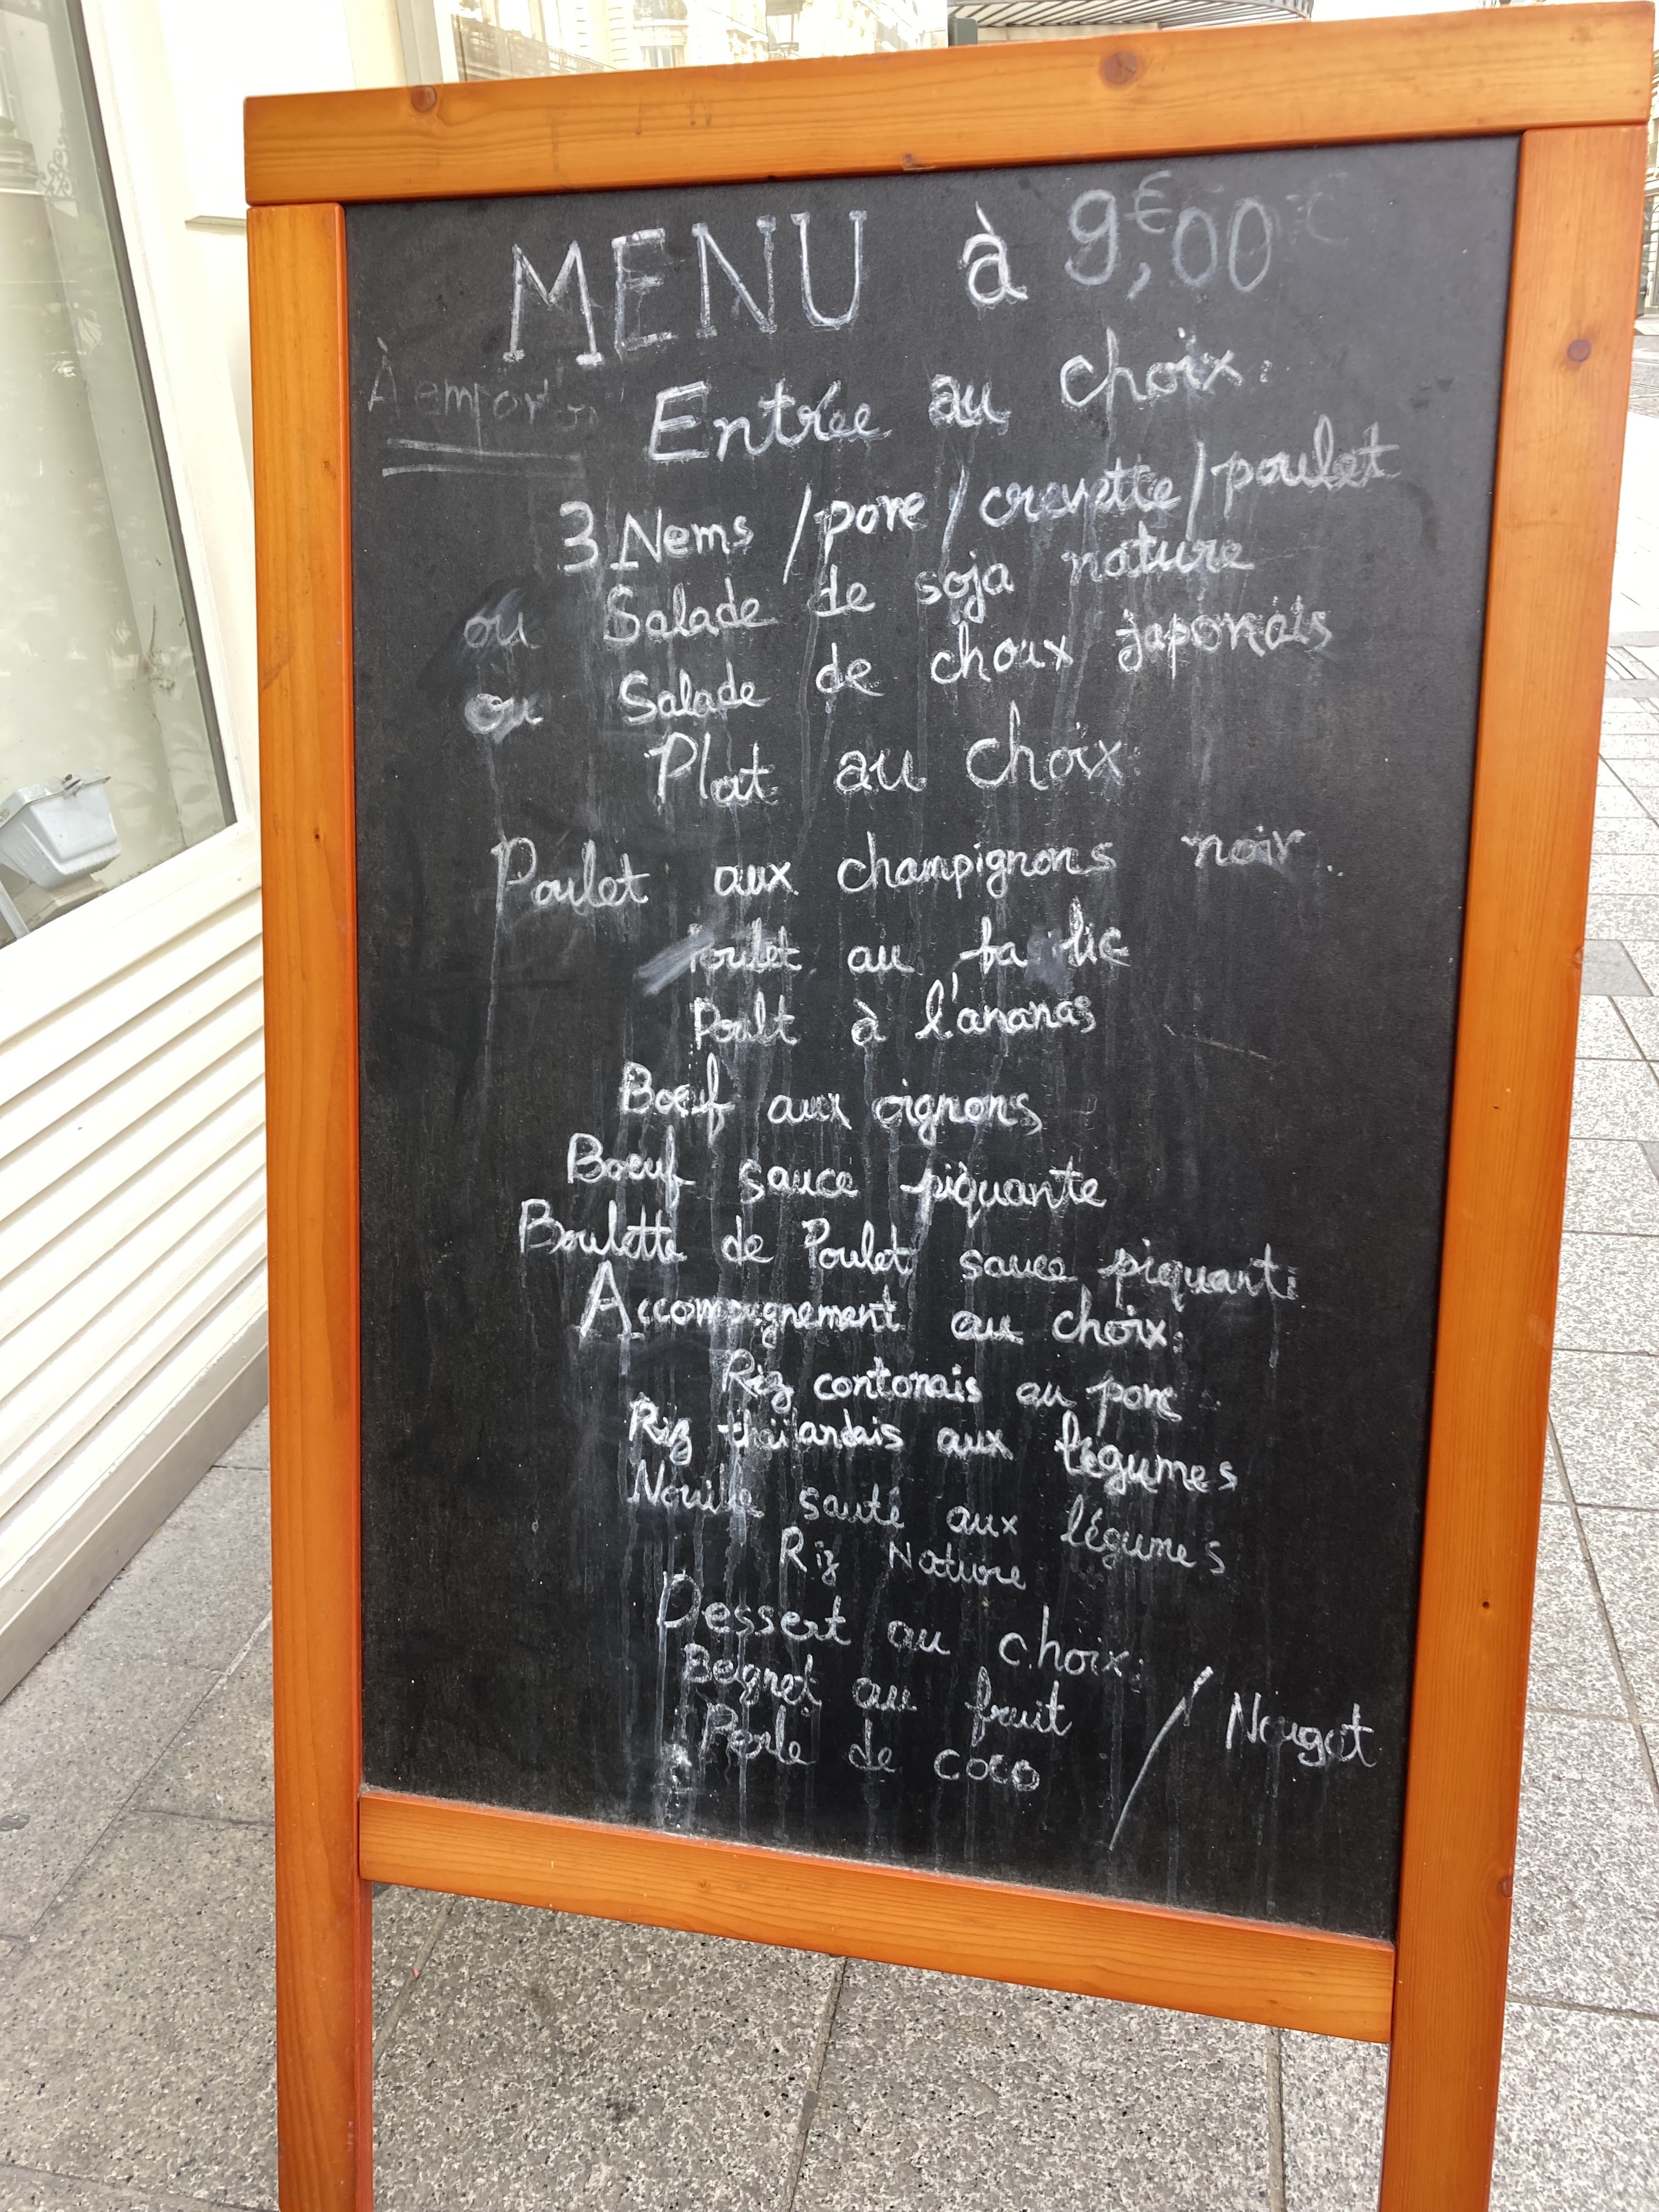 MENU à 9€,00
À emporter
Entrée au choix:
3 Nems / porc / crevette / poulet
ou Salade de soja nature
ou Salade de choux japonais
Plat au choix:
Poulet aux champignons noir
Poulet au
Poult à l'ananas
Boeuf aux oignons
Boeuf sauce piquante
Boulette de Poulet sauce piquante
Accompagnement au choix:
Riz contonais au porc
Riz thaïlandais aux légumes
Nouille sauté aux légumes
Riz Nature
Dessert au choix:
Beignet au fruit / Nougat
Perle de coco